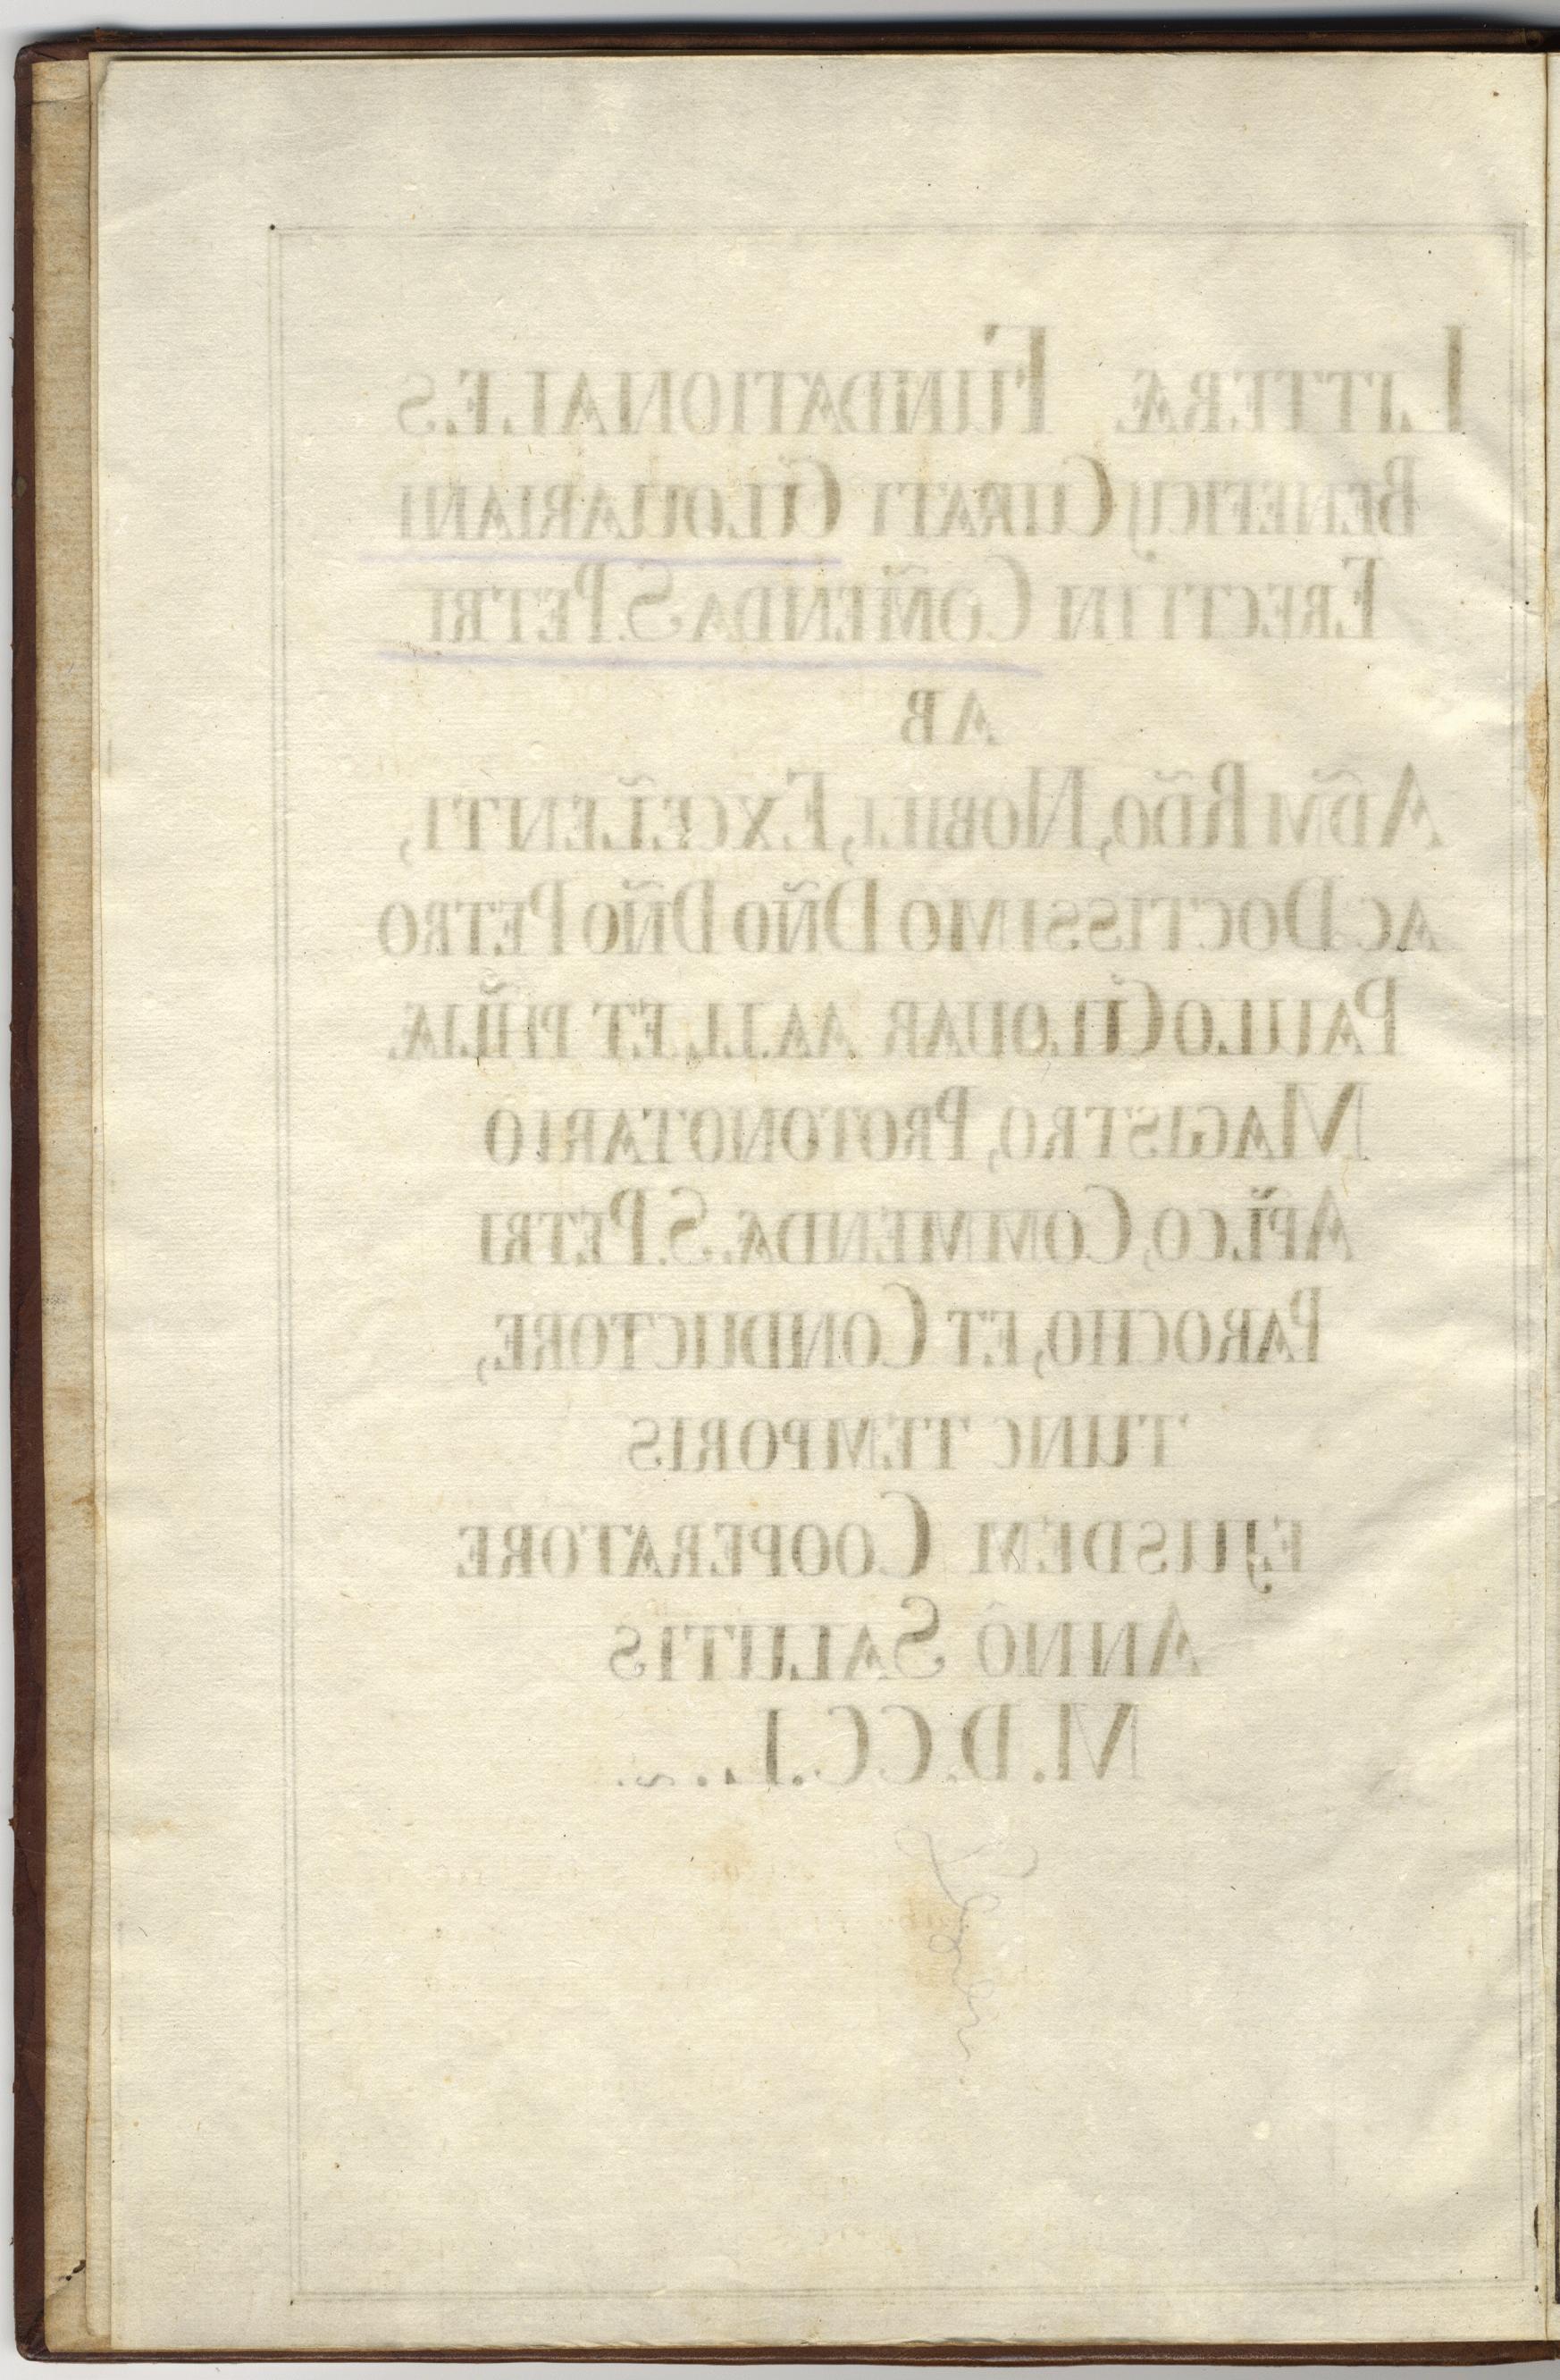 LITTERÆ FUNDATIONALES
BENEFICIJ CURATI GLOUARIANI
ERECTI IN COM̃ENDA S. PETRI
AB
ADM̃ RD̃O, NOBILI, EXCEL̃ENTI,
AC DOCTISSIMO DÑO DÑO PETRO
PAULO GLOUAR AA.LL. ET PHĨLIÆ
MAGISTRO, PROTONOTARIO
APL̃CO, COMMENDÆ S. PETRI
PAROCHO, ET CONDUCTORE,
TUNC TEMPORIS
EJUSDEM COOPERATORE
ANNÔ SALUTIS
M.D.CC.I...